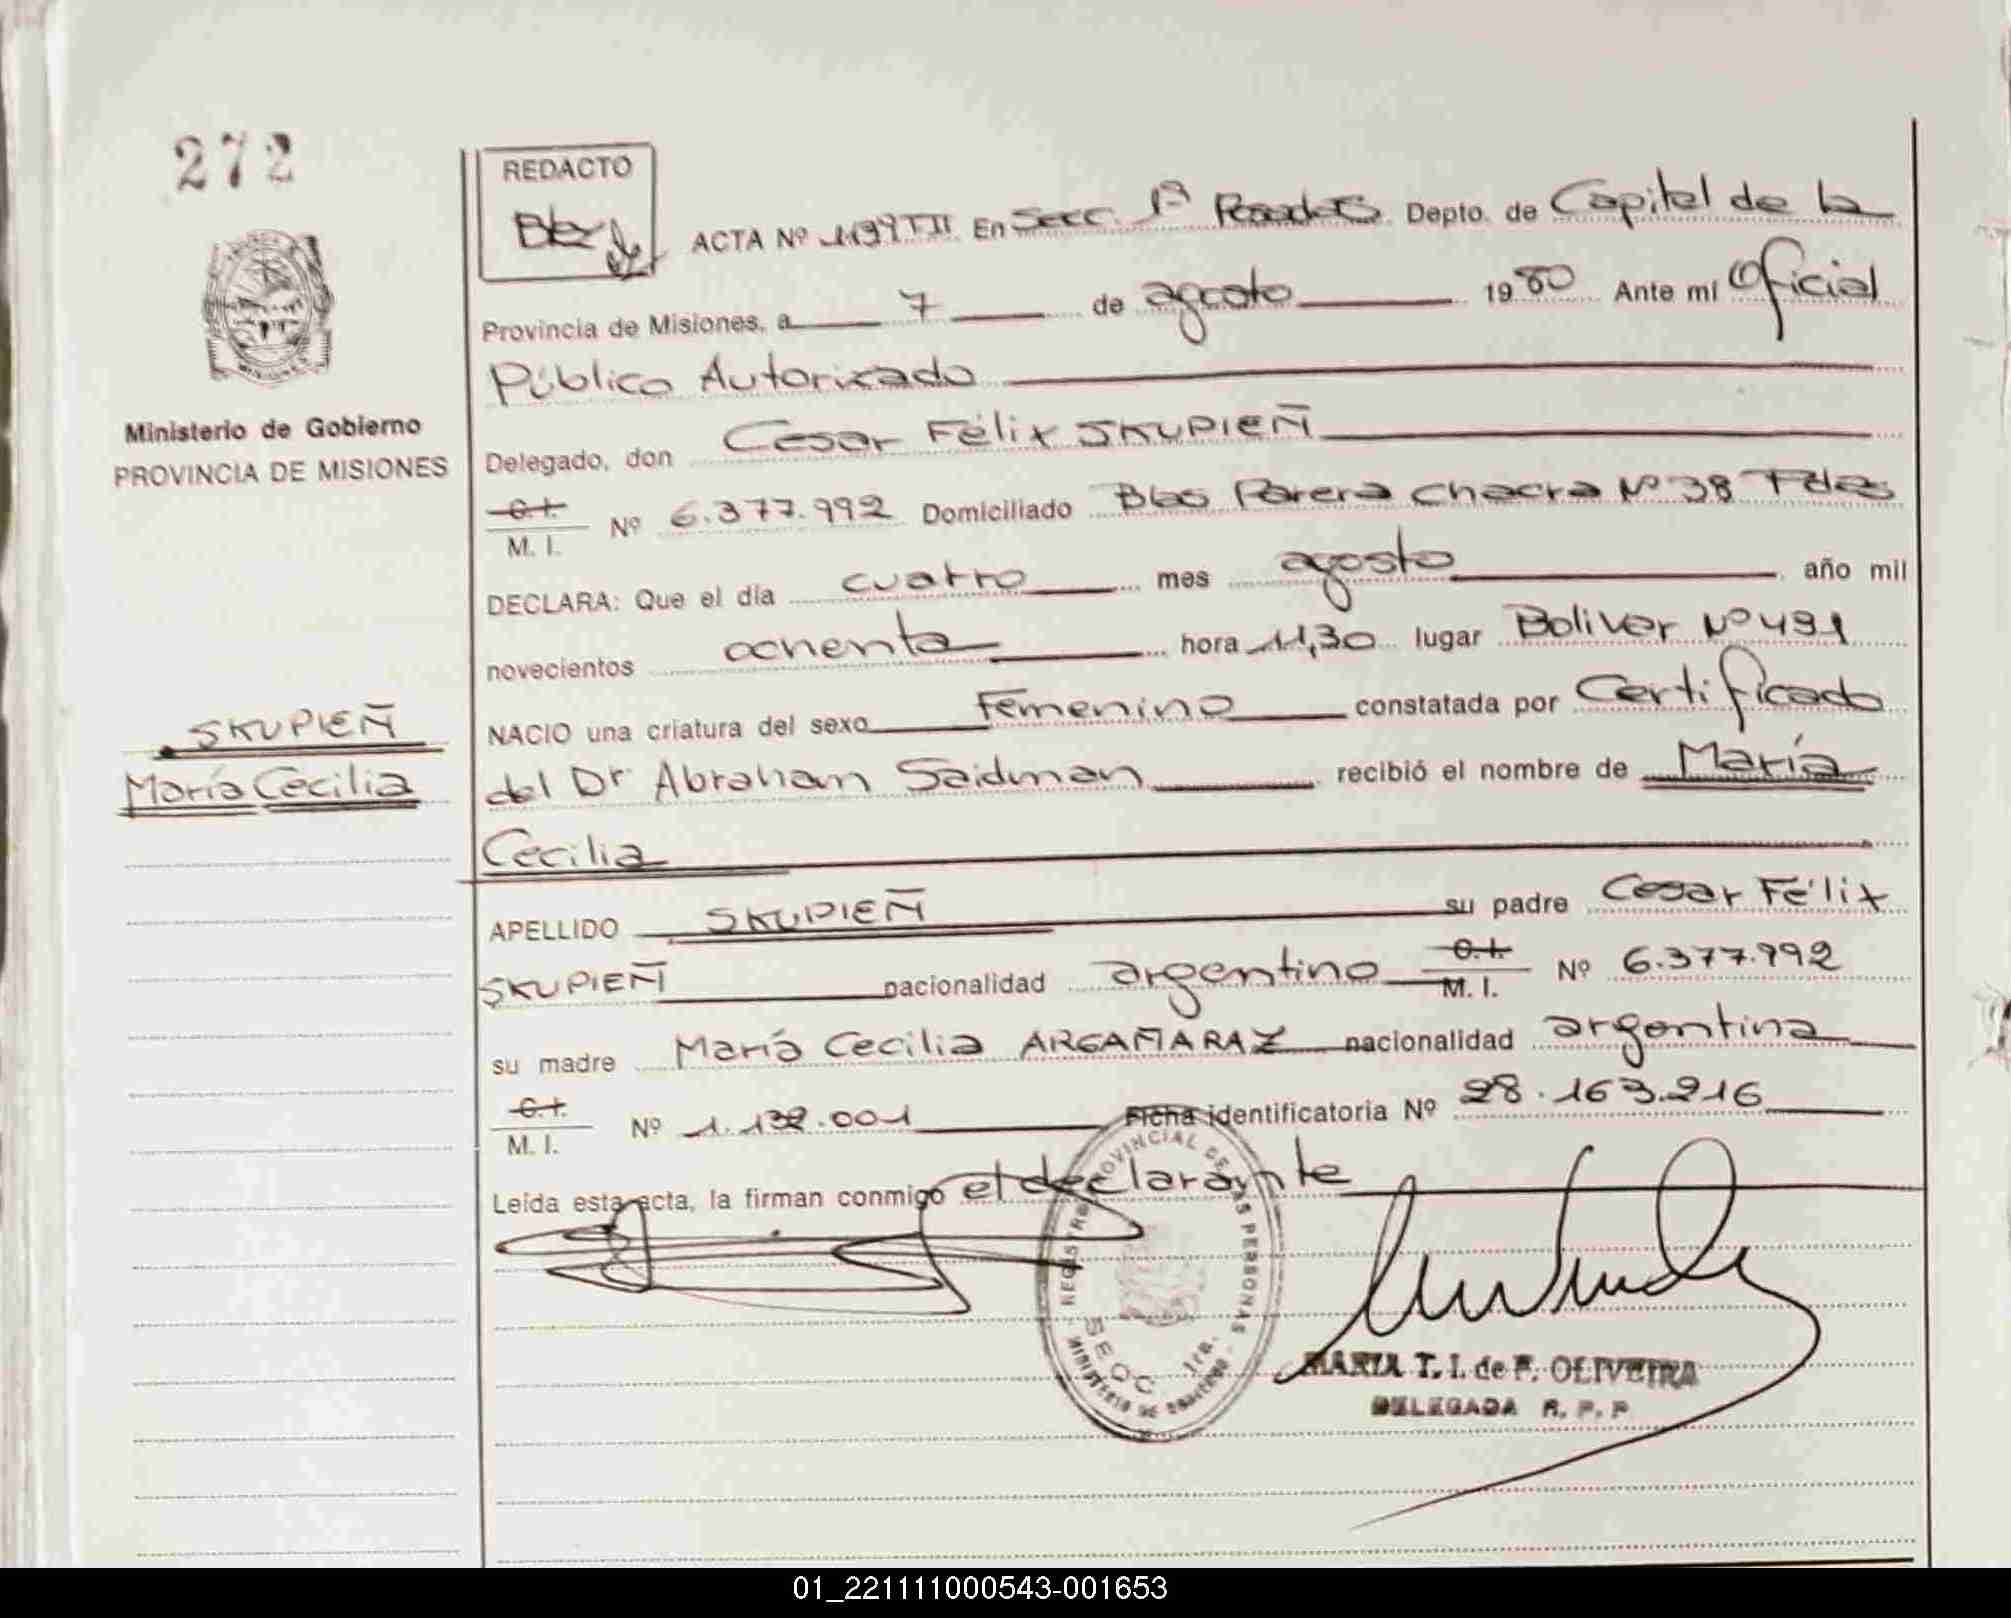 272
REDACTO
ACTA Nº 1199 TII En Secc. 1ª Posadas Depto. de Capital de la
Provincia de Misiones, a 7 de agosto 1980 Ante mí Oficial
Público Autorizado
Ministerio de Gobierno
PROVINCIA DE MISIONES
Delegado, don Cesar Félix SKUPIEÑ
C.I.
M. I. Nº 6.377.992 Domiciliado Bco Parera Chacra Nº 38 Pdas
DECLARA: Que el día cuatro mes agosto año mil
novecientos ochenta hora 11,30 lugar Bolivar Nº 491
NACIO una criatura del sexo Femenino constatada por Certificado
SKUPIEÑ
María Cecilia
del Dr Abraham Saidman recibió el nombre de María
Cecilia
APELLIDO SKUPIEÑ su padre Cesar Félix
SKUPIEÑ nacionalidad argentino C.I. M. I. Nº 6.377.992
su madre María Cecilia ARGAÑARAZ nacionalidad argentina
C.I.
M. I. Nº 1.132.001 Ficha identificatoria Nº 28.163.216
Leída esta acta, la firman conmigo el declarante
REGISTRO PROVINCIAL DE LAS PERSONAS
SECC 1ra.
MINISTERIO DE GOBIERNO
MARIA T. I. de F. OLIVEIRA
DELEGADA R. P. P
01_221111000543-001653